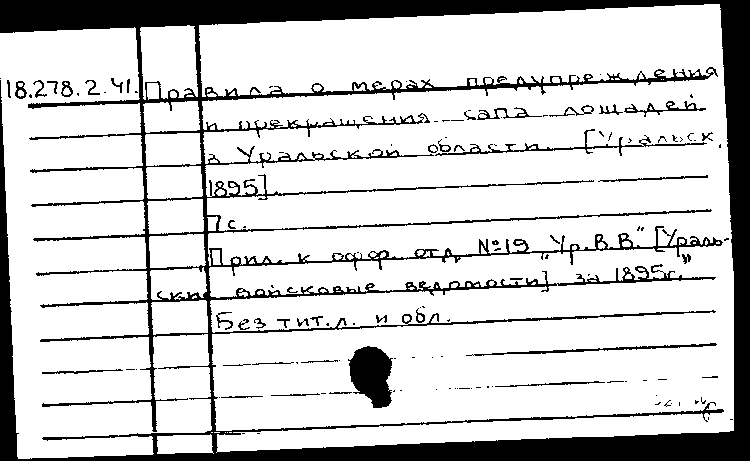 18.278.2.41. Правила о мерах предупреждения
и прекращения сапа лошадей
в Уральской области. [Уральск,
1895].
7 с.
„Прил. к офф. отд. №19 „Ур.В.В." [Ураль-
ские войсковые ведомости] за 1895г."
Без тит.л. и обл.